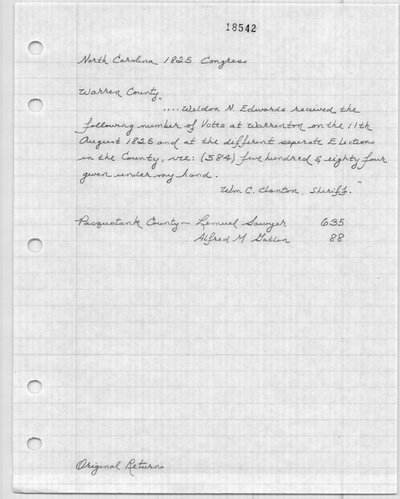 18542
North Carolina 1825 Congress
Warren County.
.... Weldon N. Edwards received the
following number of Votes at Warrenton on the 11th
August 1825 and at the different seperate Elections
in the County, viz: (584) five hundred & eighty four
given under my hand.
Wm C. Clanton, Sheriff."
Pasquotank County - Lemuel Sawyer 635
Alfred M Gatlin 88
Original Return